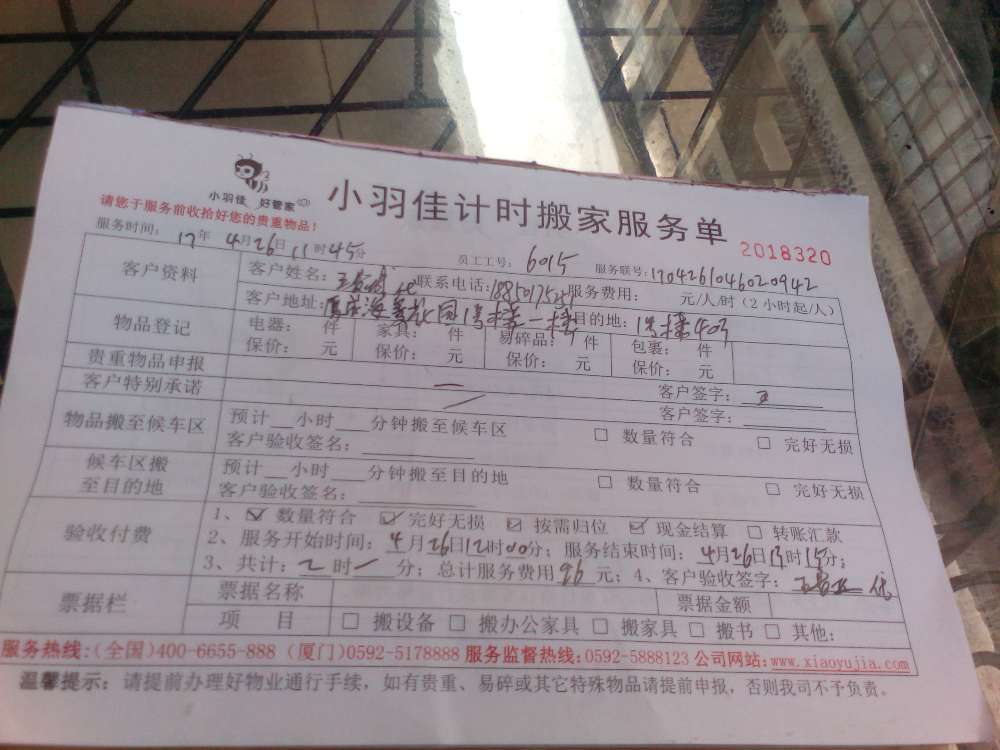 小羽佳 好管家
小羽佳计时搬家服务单
2018320
请您于服务前收拾好您的贵重物品！
服务时间： 17年 4月26日 11时45分 员工工号： 6015 服务联号：1704261046020942
客户资料 客户姓名： 联系电话： 服务费用： 元/人/时（2小时起/人）
客户地址： 花园1号楼一楼 目的地： 1号楼403
物品登记 电器： 件 家具： 件 易碎品： 件 包裹： 件
保价： 元 保价： 元 保价： 元 保价： 元
贵重物品申报 一 客户签字： 王
客户特别承诺 / 客户签字：
物品搬至候车区 预计__小时___分钟搬至候车区 □ 数量符合 □ 完好无损
客户验收签名：
候车区搬至目的地 预计__小时___分钟搬至目的地 □ 数量符合 □ 完好无损
客户验收签名：
验收付费 1、☑ 数量符合 ☑ 完好无损 ☑ 按需归位 ☑ 现金结算 □ 转账汇款
2、服务开始时间：4月26日12时00分；服务结束时间：4月26日13时15分；
3、共计：2时一分；总计服务费用96元；4、客户验收签字：
票据栏 票据名称 票据金额
项 目 □ 搬设备 □ 搬办公家具 □ 搬家具 □ 搬书 □ 其他：
服务热线：（全国）400-6655-888 （厦门）0592-5178888 服务监督热线：0592-5888123 公司网站：www.xiaoyujia.com
温馨提示：请提前办理好物业通行手续，如有贵重、易碎或其它特殊物品请提前申报，否则我司不予负责。